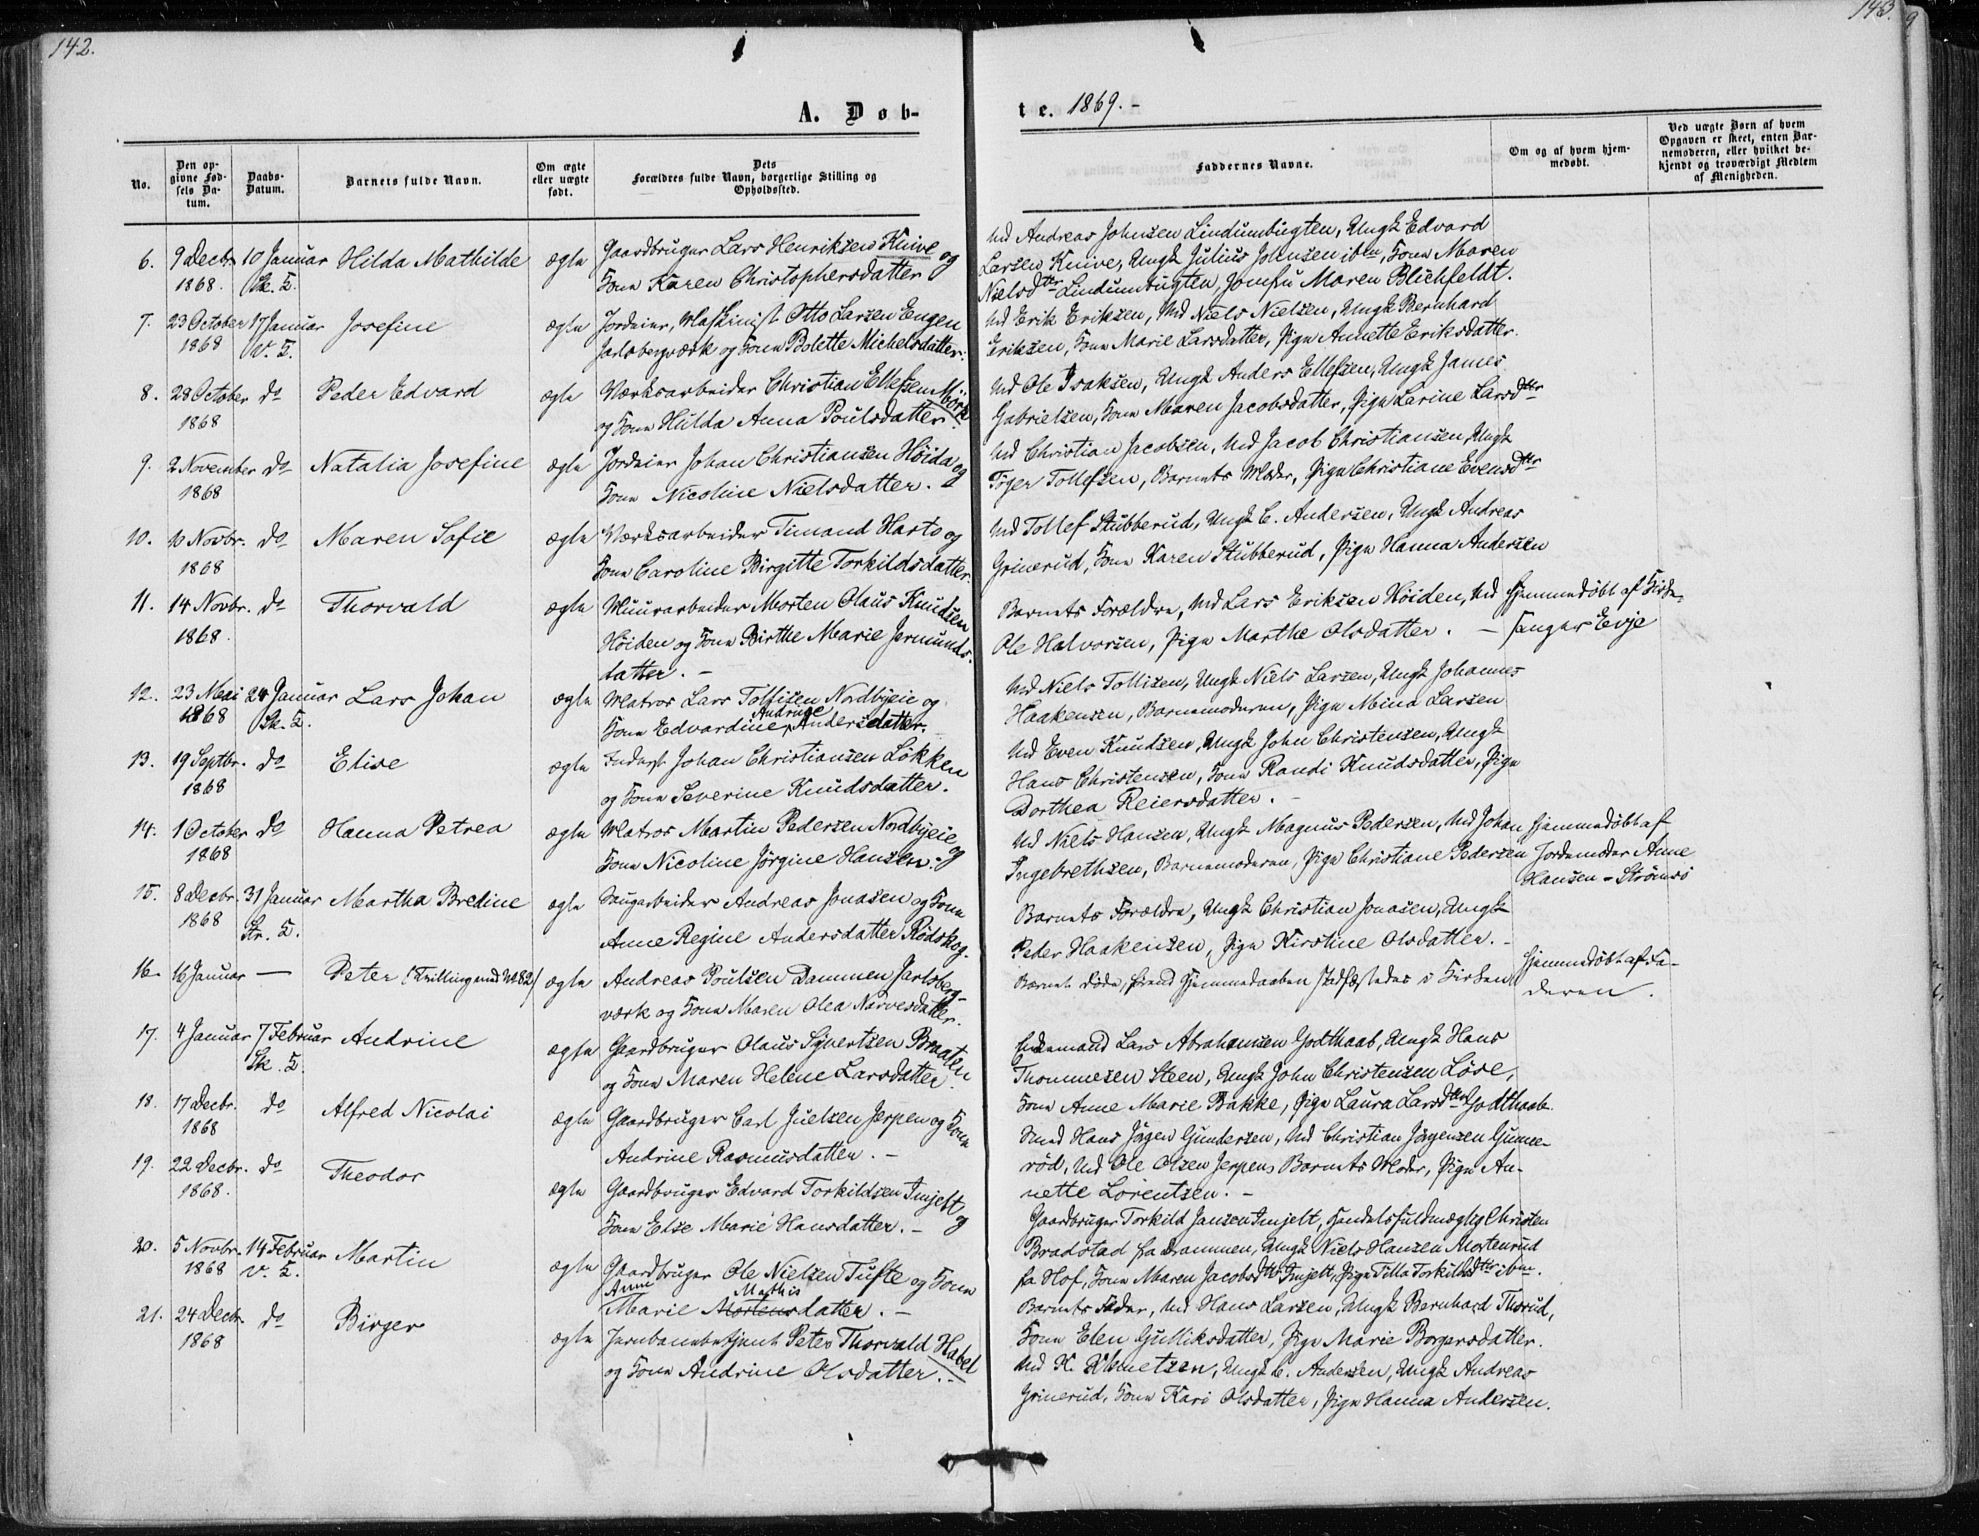 142.
143.
A. Døb-
te. 1869.-
No.
Den op-
givne Fød-
sels Da-
tum.
Daabs-
Datum.
Barnets fulde Navn.
Om ægte
eller uægte
født.
Dets
Forældres fulde Navn, borgerlige Stilling og
Opholdssted.
Faddernes Navne.
Om og af hvem hjem-
medøbt.
Ved uægte Børn af hvem
Opgaven er skeet, enten Bar-
nemoderen, eller hvilket be-
kjendt og troværdigt Medlem
af Menigheden.
6. 9 Decbr. 10 Januar Hilda Mathilde ægte Gaardbruger Lars Henriksen Knive og
1868. Sk. K. Kone Karen Christophersdatter
Ud Andreas Johnsen Lindumbugten, Ungk Edvard
Larsen Knive, Ungk Julius Johnsen ibm, Kone Maren
Nielsdtr Lindumbugten, Jomfru Maren Blichfeldt.
7. 23 October 17 Januar Josefine ægte Jordeier, Maskinist Otto Larsen Engen
1868 V. K. Jarlsbergværk og Kone Bolette Michelsdatter.
Ud Erik Eriksen, Ud Niels Nielsen, Ungk Bernhard
Eriksen, Kone Marie Larsdatter, Pige Annette Eriksdatter.
8. 28 October do Peder Edvard ægte Værksarbeider Christian Ellefsen Mörk
1868 og Kone Hilda Anna Poulsdatter.
Ud Ole Isaksen, Ungk Anders Ellefsen, Ungk James
Gabrielsen, Kone Maren Jacobsdatter, Pige Karine Larsdtr
9. 2 November do Natalia Josefine ægte Jordeier Johan Christiansen Höida og
1868 Kone Nicoline Nielsdatter.
Ud Christian Jacobsen, Ud Jacob Christiansen, Ungk
Töger Tollefsen, Barnets Moder, Pige Christiane Evensdtr
10. 10 Novbr. do Maren Sofie ægte Værksarbeider Timand Harto og
1868 Kone Caroline Birgitte Torkildsdatter
Ud Tollef Stubberud, Ungk C. Andersen, Ungk Andreas
Grinerud, Kone Karen Stubberud, Pige Hanna Andersen
11. 14 Novbr. do Thorvald ægte Muurarbeider Morten Olaus Knudsen
1868. Höiden og Kone Birthe Marie Jermunds-
datter. -
Barnets Forældre, Ud Lars Eriksen Höiden, Ud
Ole Halvorsen, Pige Marthe Olsdatter. -
Hjemmedöbt af Kirke-
sanger Evje
12. 23 Mai 24 Januar Lars Johan ægte Matros Lars Tollisen Nordbyeie og
1868 Sk. K. Kone Edvardine Andrine Andersdatter.
Ud Niels Tollisen, Ungk Niels Larsen, Ungk Johannes
Haakensen, Barnemoderen, Pige Mina Larsen
13. 19 Septbr. do Elise ægte Inderst Johan Christiansen Lökken
1868 og Kone Severine Knudsdatter.
Ud Even Knudsen, Ungk John Christensen, Ungk
Hans Christensen, Kone Randi Knudsdatter, Pige
Dorthea Reiersdatter. -
14. 1 October do Hanna Petrea ægte Matros Martin Pedersen Nordbyeie og
1868 Kone Nicoline Jörgine Hansen.
Ud Niels Hansen, Ungk Magnus Pedersen, Ud Johan
Ingebrethsen, Barnemoderen, Pige Christiane Pedersen
Hjemmedöbt af
Jordemoder Anne
Hansen - Strömsö
15. 8 Decbr. 31 Januar Martha Bredine ægte Saugarbeider Andreas Jonasen og Kone
1868 Str. K. Anne Regine Andersdatter Rödskog.
Barnets Forældre, Ungk Christian Jonasen, Ungk
Peder Haakensen, Pige Kirstine Olsdatter. -
16. 16 Januar — Peter (Trilling med No 82) ægte Andreas Poulsen Dammen Jarlsberg-
værk og Kone Maren Olea Narvesdatter.
Barnet döde, förend Hjemmedaaben stadfæstedes i Kirken
Hjemmedöbt af Fa-
deren.
17. 4 Januar 7 Februar Andrine ægte Gaardbruger Olaus Syvertsen Braaten
Sk. K. og Kone Maren Helene Larsdatter.
Lars Abrahamsen Godthaab, Ungk Hans
Thommesen Steen, Ungk John Christensen Löse,
Kone Anne Marie Bakke, Pige Laura Larsdtr Godthaab.
18. 17 Decbr. do Alfred Nicolai ægte Gaardbruger Carl Juelsen Jerpen og Kone
1868 Andrine Rasmusdatter. -
Smed Hans Jörgen Gundersen, Ud Christian Jörgensen Gunne-
röd, Ud Ole Olsen Jerpen, Barnets Moder, Pige An-
nette Lorentsen. -
19. 22 Decbr. do Theodor ægte Gaardbruger Edvard Torkildsen Imjelt og
1868. Kone Else Marie Hansdatter. -
Gaardbruger Torkild Jansen Imjelt, Handelsfuldmægtig Christen
Bradstad fra Drammen, Ungk Niels Hansen Mortenrud
fra Hof, Kone Maren Jacobsdtr Imjelt, Pige Tilla Torkildsdtr ibm.
20. 5 Novbr. 14 Februar Martin ægte Gaardbruger Ole Nielsen Tufte og Kone
1868 V. K. Anne Marie Mortens Mathisdatter. -
Barnets Fader, Ud Hans Larsen, Ungk Bernhard Thorud,
Kone Elen Gulliksdatter, Pige Marie Borgersdatter.
21. 24 Decbr. do Birger ægte Jernbanebetjent Peter Thorvald Habel
1868 og Kone Andrine Olsdatter. -
Ud K. Klemetsen, Ungk C. Andersen, Ungk Andreas
Grinerud, Kone Kari Olsdatter, Pige Hanna Andersen.